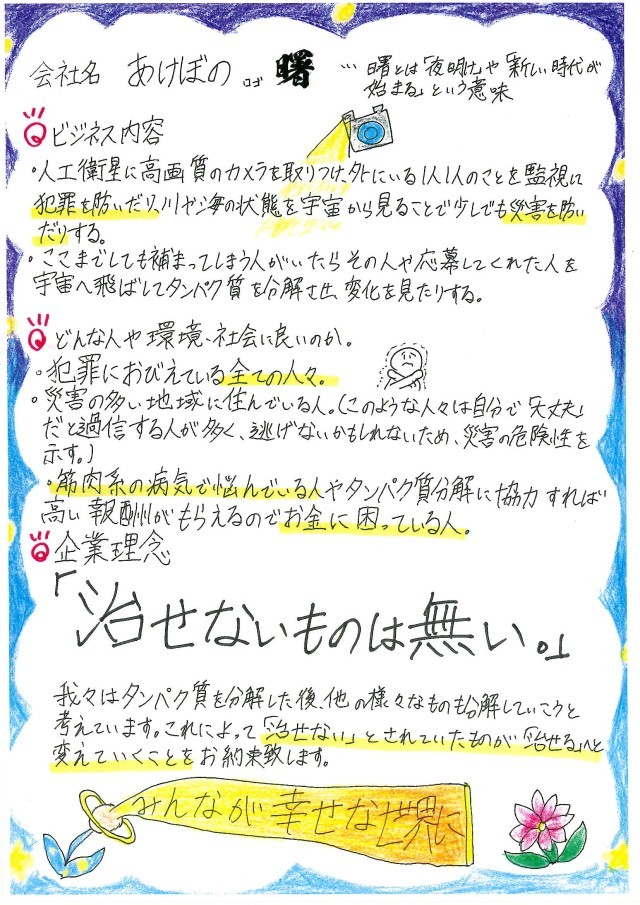 会社名 あけぼの ロゴ 曙 … 曙とは「夜明け」や「新しい時代が
始まる」という意味
ビジネス内容
・人工衛星に高画質のカメラを取りつけ、外にいる1人1人のことを監視し
犯罪を防いだり、川や海の状態を宇宙から見ることで少しでも災害を防い
だりする。
・ここまでしても補まってしまう人がいたらその人や応募してくれた人を
宇宙へ飛ばしてタンパク質を分解させ、変化を見たりする。
どんな人や環境、社会に良いのか。
・犯罪におびえている全ての人々。
・災害の多い地域に住んでいる人。(このような人々は自分で「大丈夫」
だと過信する人が多く、逃げないかもしれないため、災害の危険性を
示す。)
・筋肉系の病気で悩んでいる人やタンパク質分解に協力すれば
高い報酬がもらえるのでお金に困っている人。
企業理念
「治せないものは無い。」
我々はタンパク質を分解した後、他の様々なものも分解していこうと
考えています。これによって「治せない」とされていたものが「治せる」へと
変えていくことをお約束致します。
みんなが幸せな世界に